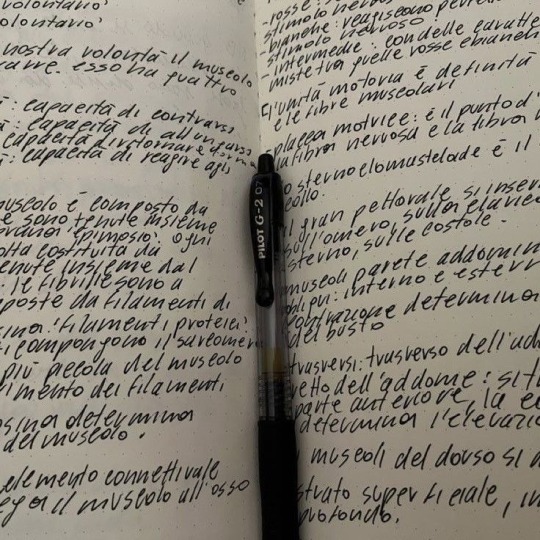 volontario
volontario
nostra volontà il muscolo
esso ha quattro
: capacità di contrarsi
: capacità di allungarsi
: capacità di ritornare
: capacità di reagire agli
muscolo è composto da
e sono tenute insieme
epimosio. Ogni
costituita da
tenute insieme dal
. le fibrille sono a
poste da filamenti di
sina: filamenti proteici
compongono il sarcomero
più piccola del muscolo
rimento dei filamenti
sina determina
del muscolo.
elemento connettivale
lega il muscolo all'osso
PILOT G-2 07
-rosse:
stimolo nervoso
-bianche: reagiscono
stimolo nervoso
-intermedie: con delle caratte
miste tra quelle rosse e bianche
l'unità motoria è definita
e le fibre muscolari
placca motrice: è il punto d'
la fibra nervosa e la fibra
o sternocleomastelade è il
collo.
il gran pettorale si inser
sull'omero, sulla clavic
sterno, sulle costole.
muscoli parete addomin
obliqui: interno e ester
contrazione determina
del busto
trasversi: trasverso dell'ad
retto dell'addome: si t
parte anteriore, la
determina l'elevazio
i muscoli del dorso si
strato superficiale, in
profondo.